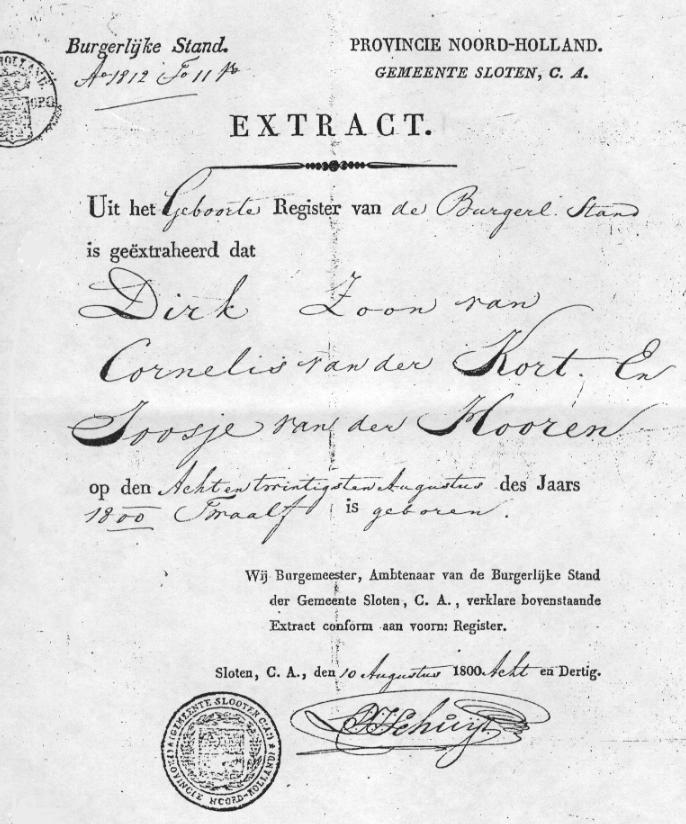 Burgerlijke Stand.
Ao 1812 Fo 11
PROVINCIE NOORD-HOLLAND.
GEMEENTE SLOTEN, C. A.
HOLLAND
EXTRACT.
Uit het Geboorte Register van de Burgerl. Stand
is geëxtraheerd dat
Dirk Zoon van
Cornelis van der Kort. En
Joosje van der Hooren
op den Acht en twintigsten Augustus des Jaars
1800 Twaalf is geboren.
Wij Burgemeester, Ambtenaar van de Burgerlijke Stand
der Gemeente Sloten, C. A., verklare bovenstaande
Extract conform aan voorn: Register.
Sloten, C. A., den 10 Augustus 1800 Acht en Dertig.
Schuijt
GEMEENTE SLOOTEN CA
PROVINCIE NOORD-HOLLAND